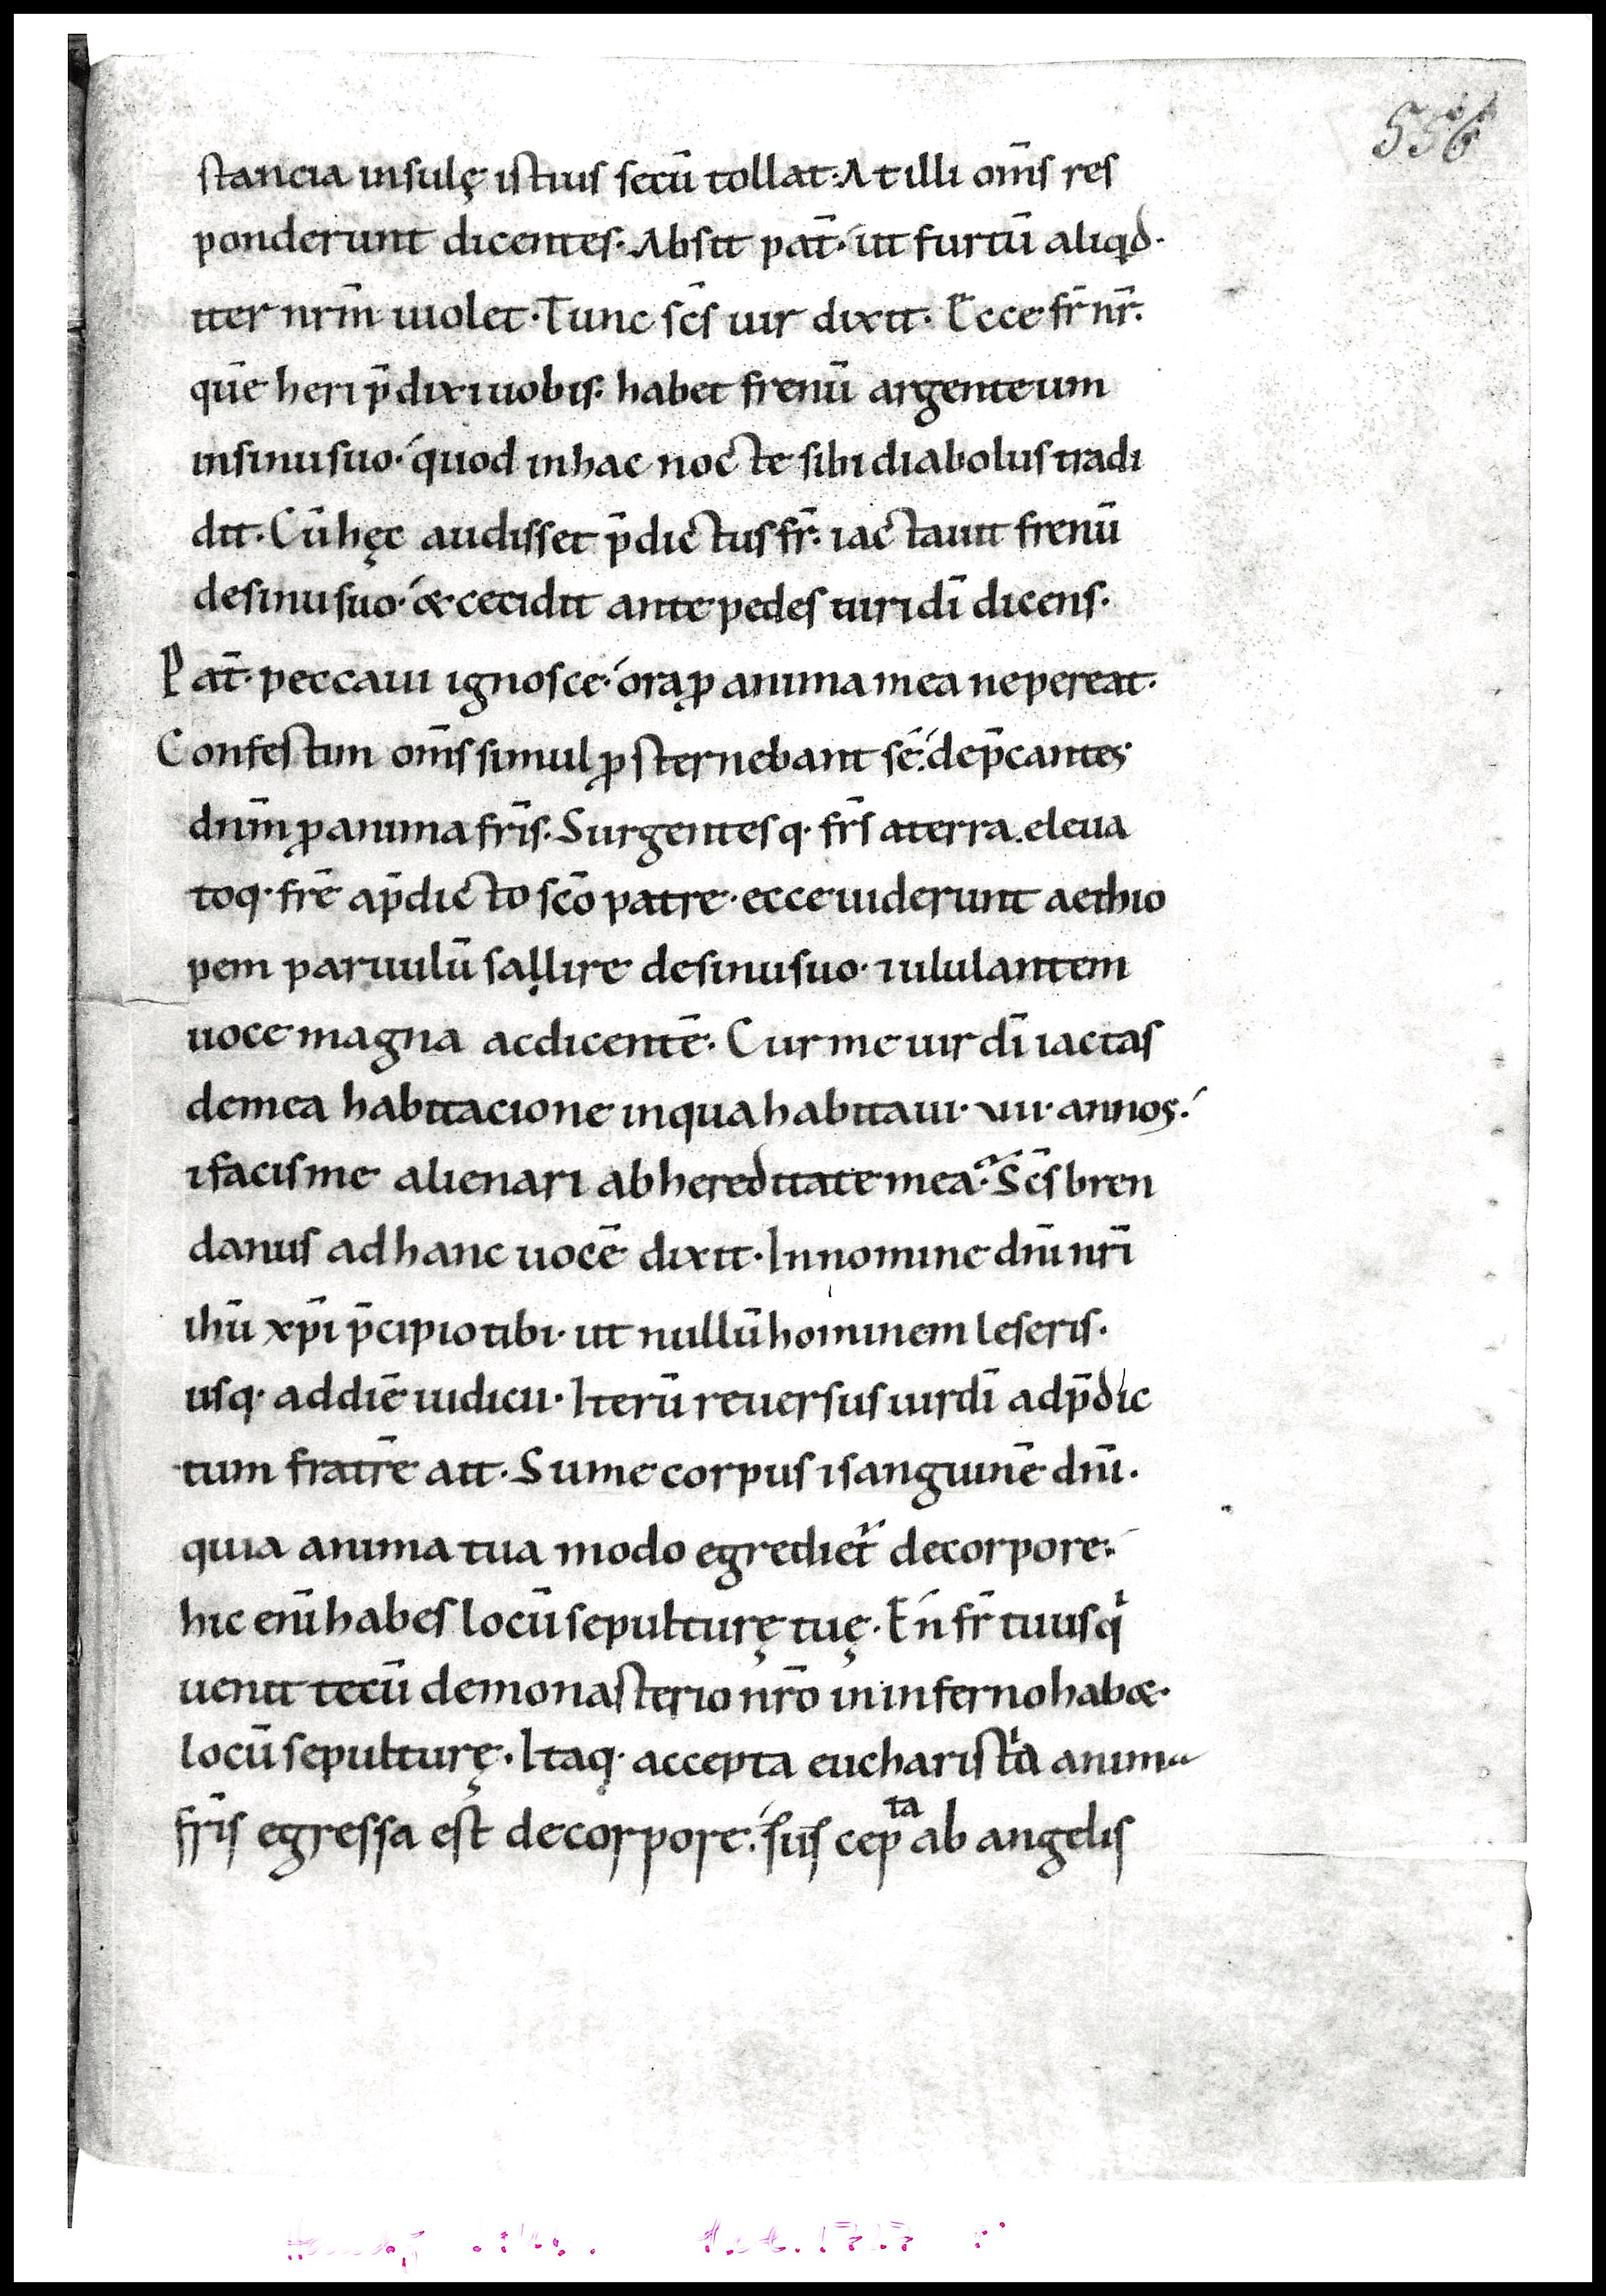 556
stancia insulę istius secū tollat. At illi om̄s res
ponderunt dicentes. Absit pat̄. ut furtū aliqd.
iter nrm̄ uiolet. Tunc sc̄s uir dixit. Ecce fr̄ nr̄.
quē heri p̄dixi uobis. habet frenū argenteum
insinusuo. quod inhac nocte sibi diabolus tradi
dit. Cū hęc audisset p̄dictus fr̄. iactauit frenū
desinusuo. & cecidit ante pedes uiri dī dicens.
Pat̄. peccaui ignosce. ora ꝓ anima mea ne pereat.
Confestim om̄s simul ꝓsternebant sē. dep̄cantes
dnm̄ ꝓ anima fr̄is. Surgentesq. fr̄s aterra. eleua
toq. frē ap̄dicto scō patre. ecce uiderunt aethio
pem paruulū sallire desinusuo. ⁊ ululantem
uoce magna acdicentē. Cur me uir dī iactas
demea habitacione inqua habitaui. uii. annos.
⁊ facis me alienari abhereditate mea. Sc̄s bren
danus ad hanc uocē dixit. In nomine dn̄i nr̄i
ihū xp̄i p̄cipio tibi. ut nullū hominem leseris.
usq. addiē iudicii. Iterū reuersus uir dī adp̄dic
tum fratrē ait. Sume corpus ⁊ sanguinē dn̄i.
quia anima tua modo egrediet̄ decorpore.
hic enī habes locū sepulturę tuę. En̄ fr̄ tuus qi
uenit tecū demonasterio nr̄o in inferno hab&.
locū sepulturę. Itaq. accepta eucharistia anima
fr̄is egressa est decorpore. sus cepta ab angelis